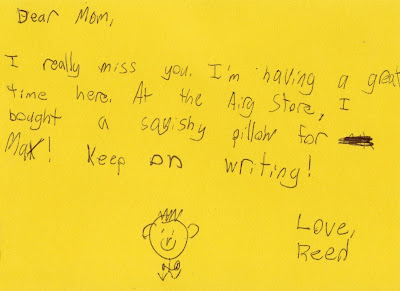 Dear Mom,
I really miss you. I'm having a great
time here. At the Airg Store, I
bought a sqishy pillow for
Max! Keep on writing!
Love,
Reed